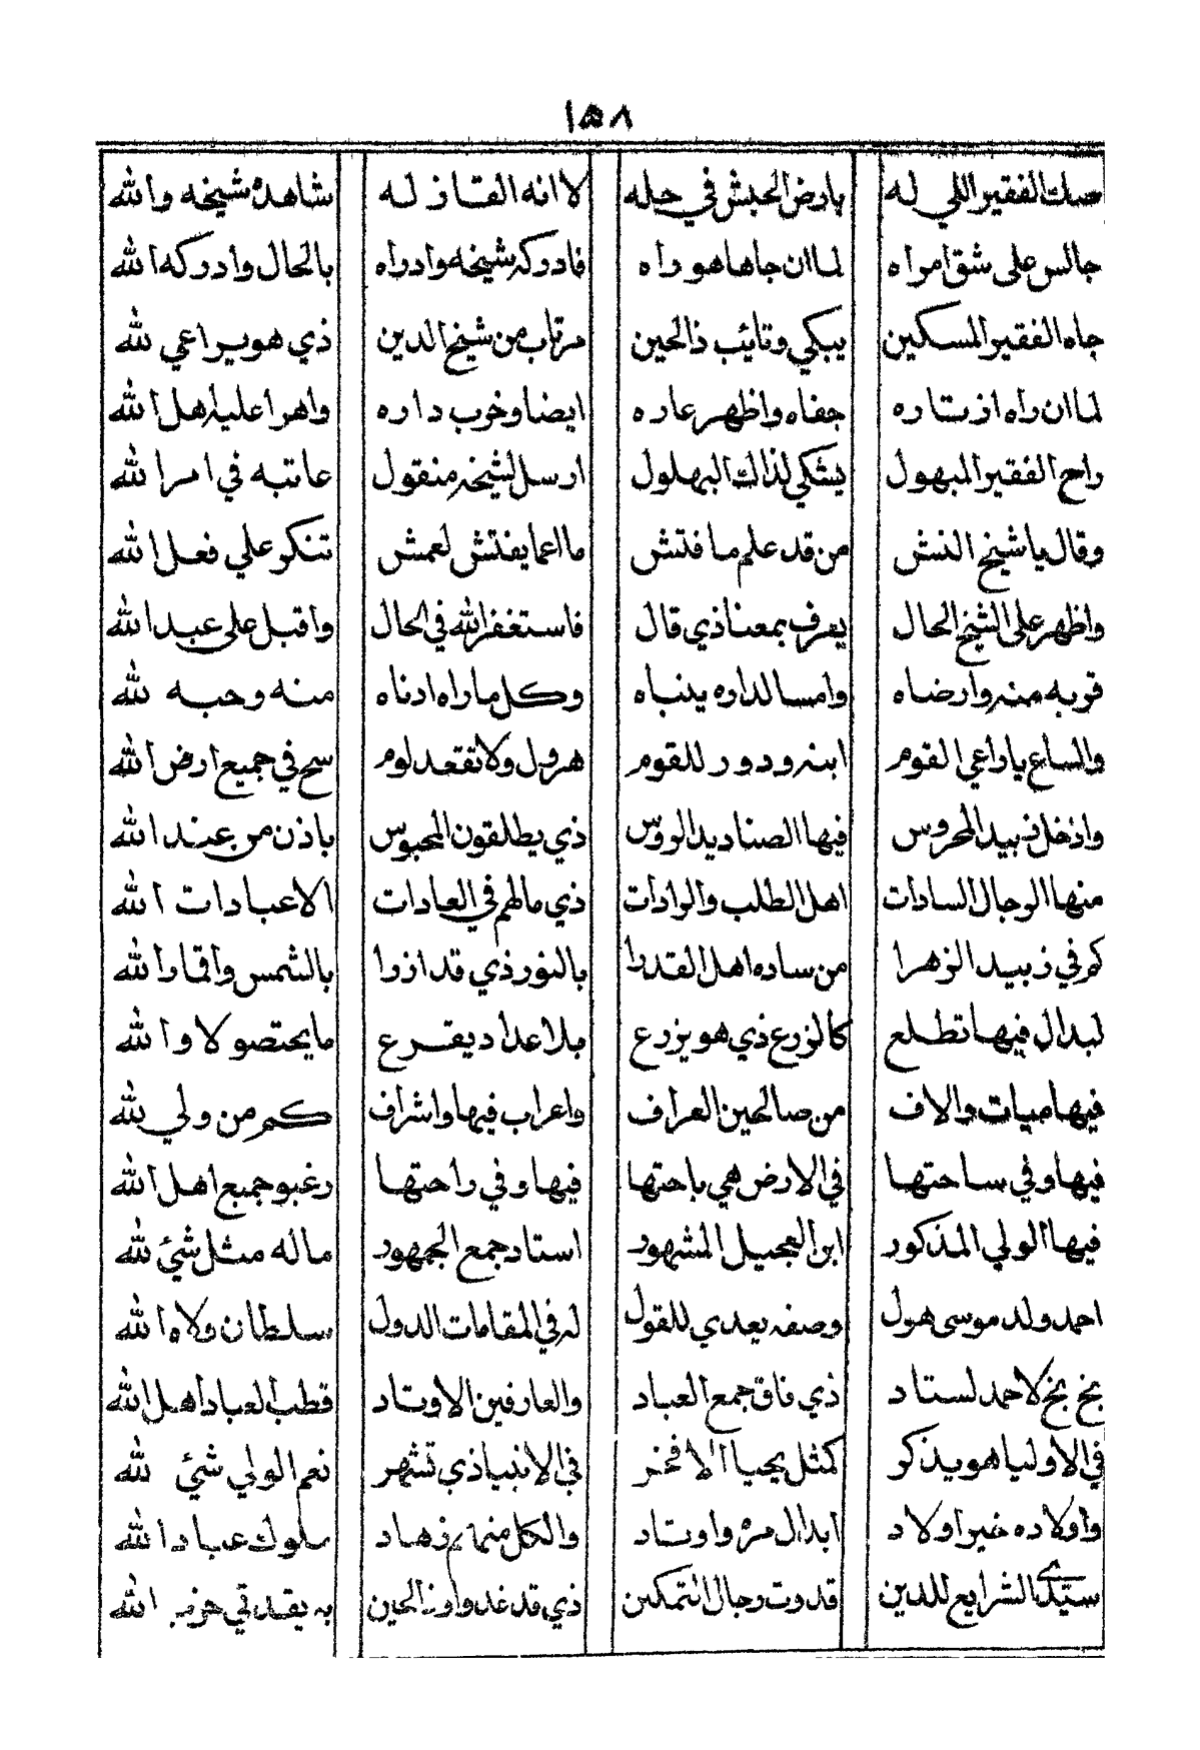 ١٥٨
صك الفقير اللي له بارض الحبش في حله لا انه القا ز له شاهده شيخه والله
جالس على شق امراه لما ان جاها هو راه فادركه شيخه وادراه بالحال وادركه الله
جاه الفقير المسكين يبكي وتايب ذالحين مرتاب من شيخ الدين ذي هو يراعي لله
لما ان راه از تاره جفاه واظهر عاره ايضا وخرب داره واهرا عليه اهل الله
راح الفقير المبهول يشكي لذاك البهلول ارسل لشيخه منقول عاتبه في امر الله
وقال يا شيخ النش من قد علم ما فتش ما اعما يفتش لعمش تنكر علي فعل الله
واظهر على الشيخ الحال يعرف بمعنا ذي قال فاستغفر الله في الحال واقبل على عبد الله
قربه منه وارضاه وامسا لداره ينباه وكل ما راه ادناه منه وحبه لله
والساع يا داعي القوم ابنه ودور للقوم هرول ولا تقعد لوم سح في جميع ارض الله
وادخل زبيد المحروس فيها الصناديد الروس ذي يطلقون المحبوس باذن من عند الله
منها الرجال السادات اهل الطلب والرادات ذي مالهم في العادات الا عبادات الله
كم في زبيد الزهرا من ساده اهل القدرا بالنور ذي قد ازرا بالشمس واقمار الله
لبدال فيها تطلع كالزرع ذي هو يزرع بلا عداد يقرع ما يحتصو لا والله
فيها ميات والاف من صالحين العراف واعراب فيها واشراف كم من ولي لله
فيها وفي ساحتها في الارض هي باحتها فيها وفي راحتها رغبو جميع اهل الله
فيها الولي المذكور ابن العجيل المشهور استاد جمع الجمهور ماله مثل شئ لله
احمد ولد موسى هول وصفه يعدي للقول له في المقامات الدول سلطان ولاه الله
بخ بخ لاحمد لستاد ذي فاق جمع العباد والعارفين الاوتاد قطب العباد اهل الله
في الاوليا هو يذكر كمثل يحيا الافخر في الانبيا ذي تشهر نعم الولي شئ لله
واولاده خير اولاد ابدال مره واوتاد والكل منهم زهاد ملوك عباد الله
سيدي الشرايع للدين قدوت رجال التمكين ذي قد غدوا وذالحين به يقتدي حزب الله